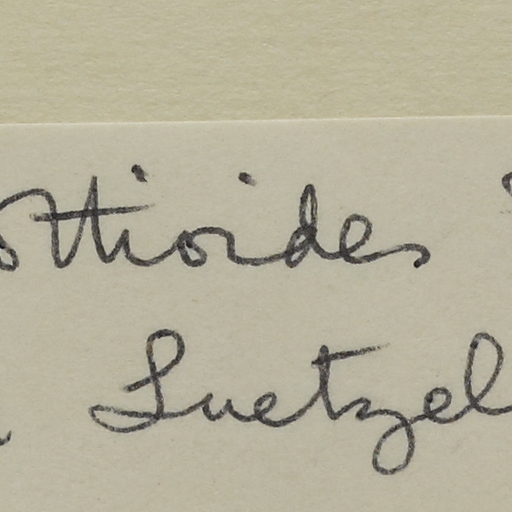 ottioides
Luetzel